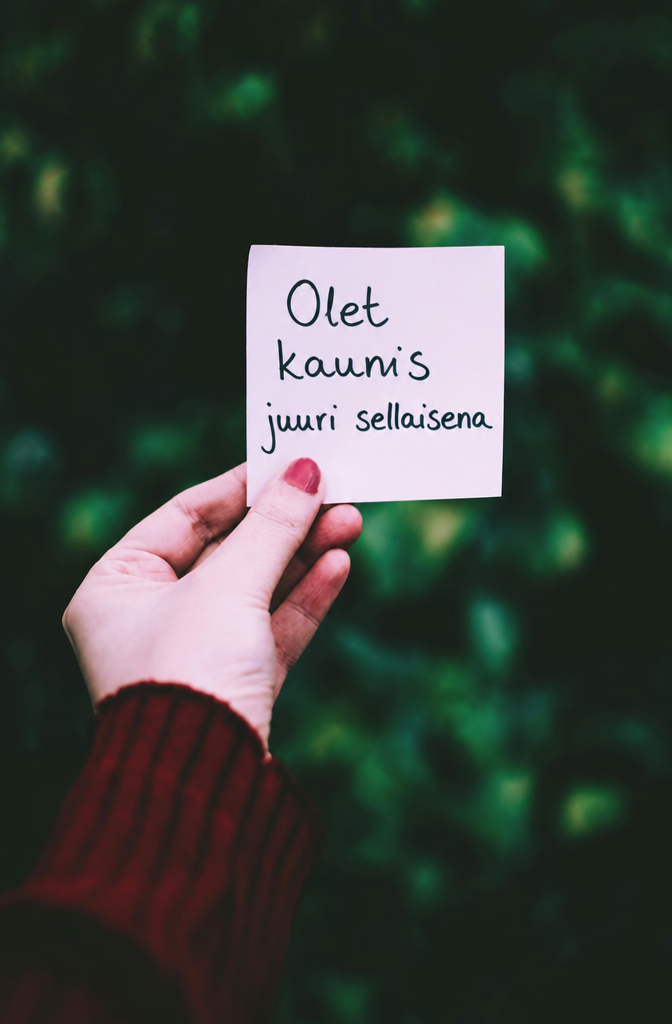 Olet
kaunis
juuri sellaisena